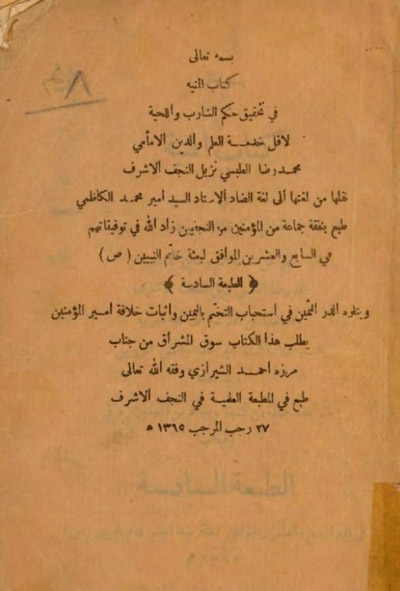 بسمه تعالى
كتاب المنيه
في تحقيق حكم الشارب واللحية
لاقل خدمة العلم والدين الامامي
محمد رضا الطبسي نزيل النجف الاشرف
نقلها من لغتها الى لغة الضاد الاستاد السيد امير محمد الكاظمي
طبع بنفقة جماعة من المؤمنين من النجفيين زاد الله في توفيقاتهم
في السابع والعشرين الموافق لبعثة خاتم النبيين ( ص )
﴿ الطبعة السادسة ﴾
ويتلوه الدر الثمين في أستحباب التختم باليمين وأثبات خلافة أمير المؤمنين
يطلب هذا الكتاب سوق المشراق من جناب
مرزه أحمد الشيرازي وفقه الله تعالى
طبع في المطبعة العلمية في النجف الاشرف
٢٧ رجب المرجب ١٣٦٥ ه